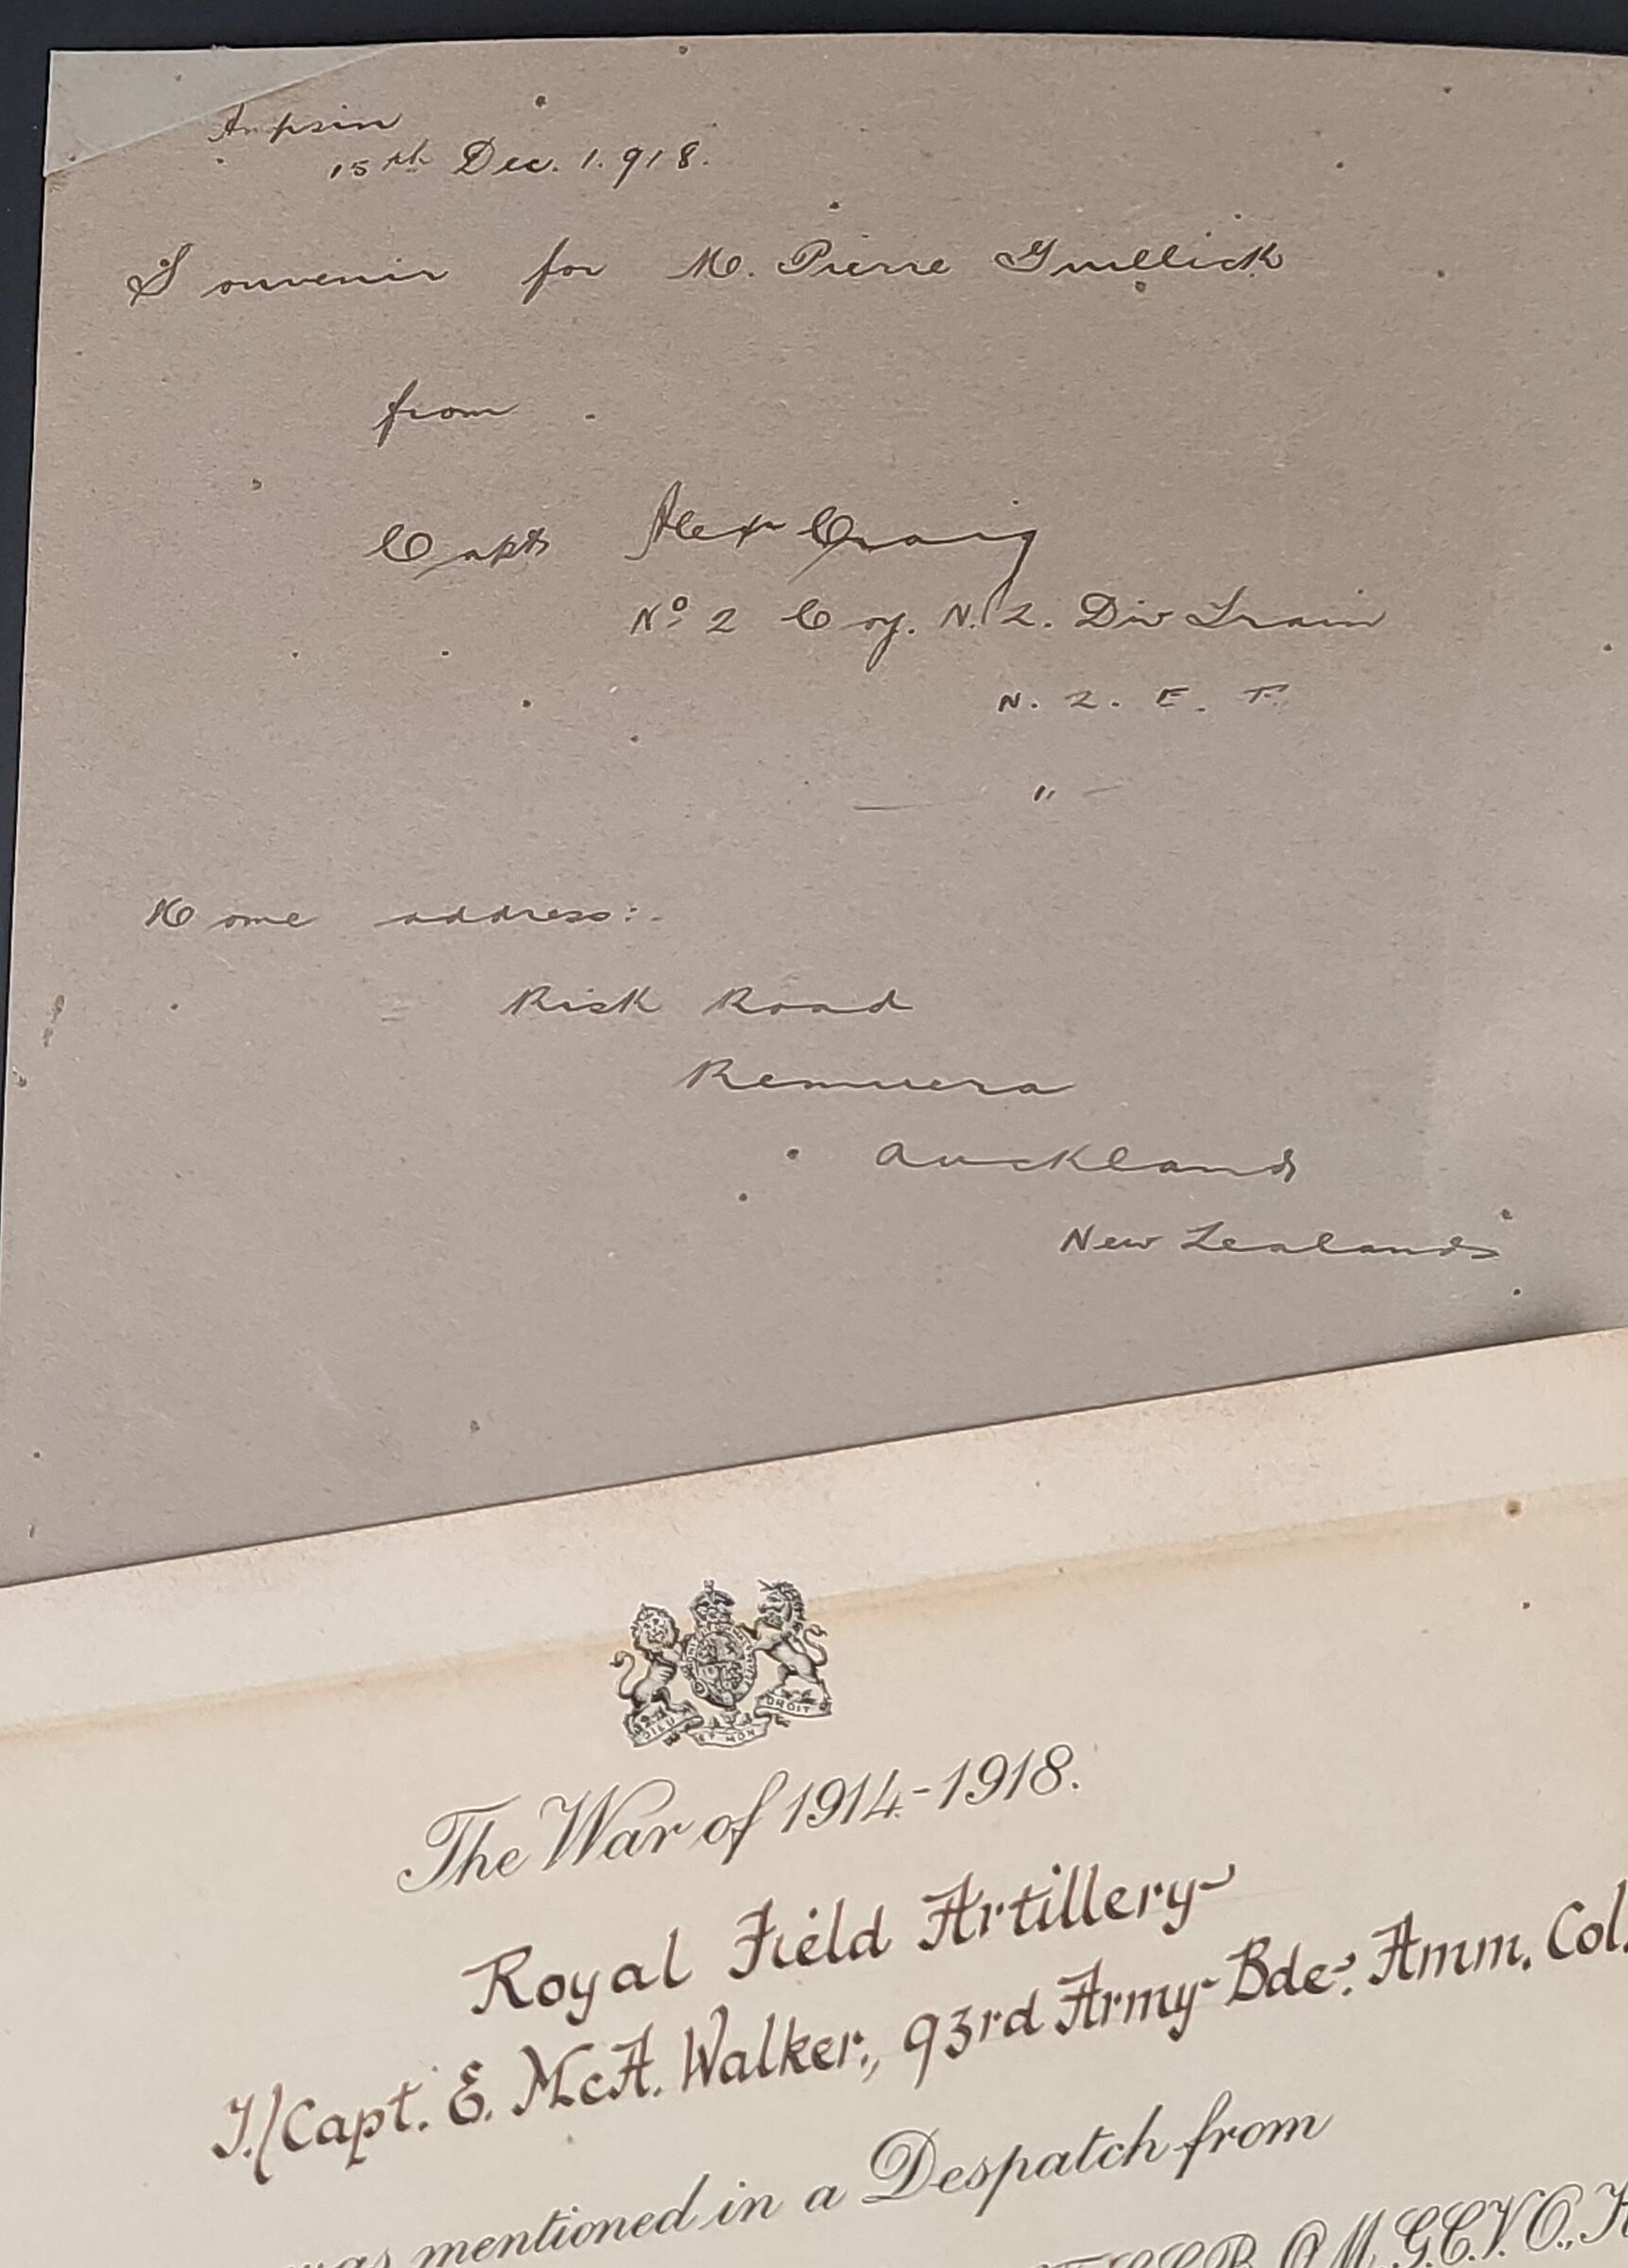 Ampsin
15th Dec. 1.918.
Souvenir for M. Pierre
from
Capt Alex Craig
No 2 Coy. N.Z. Div Train
N. Z. E. F.
"
Home address:-
Risk Road
Remuera
Auckland
New Zealand
DIEU ET MON DROIT
The War of 1914-1918.
Royal Field Artillery
T./Capt. E. McA. Walker, 93rd Army Bde. Amm. Col.
was mentioned in a Despatch from
G.C.B. O.M. G.C.V.O., K